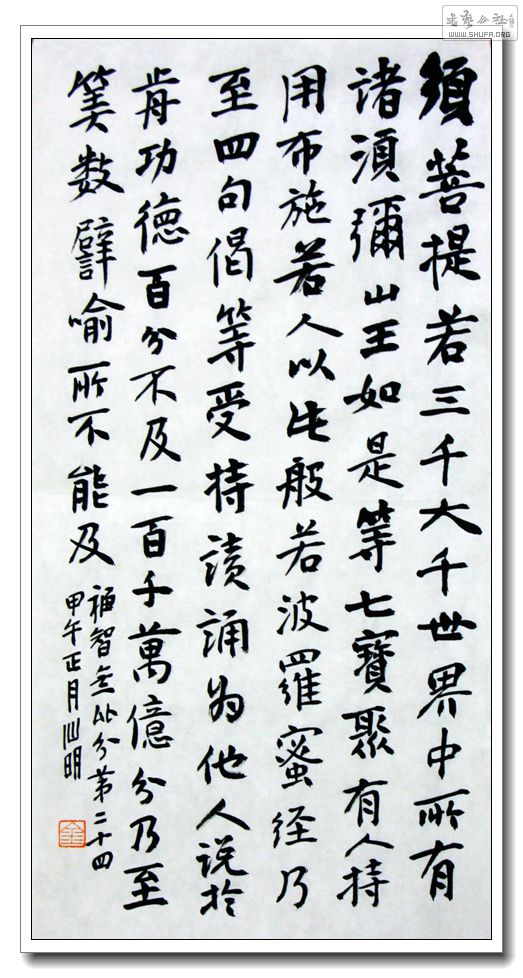 須菩提若三千大千世界中所有
諸須彌山王如是等七寶聚有人持
用布施若人以此般若波羅蜜经乃
至四句偈等受持讀誦为他人说於
前功德百分不及一百千萬億分乃至
算数譬喻所不能及
福智無比分第二十四
甲午正月明
书艺公社
WWW.SHUFA.ORG